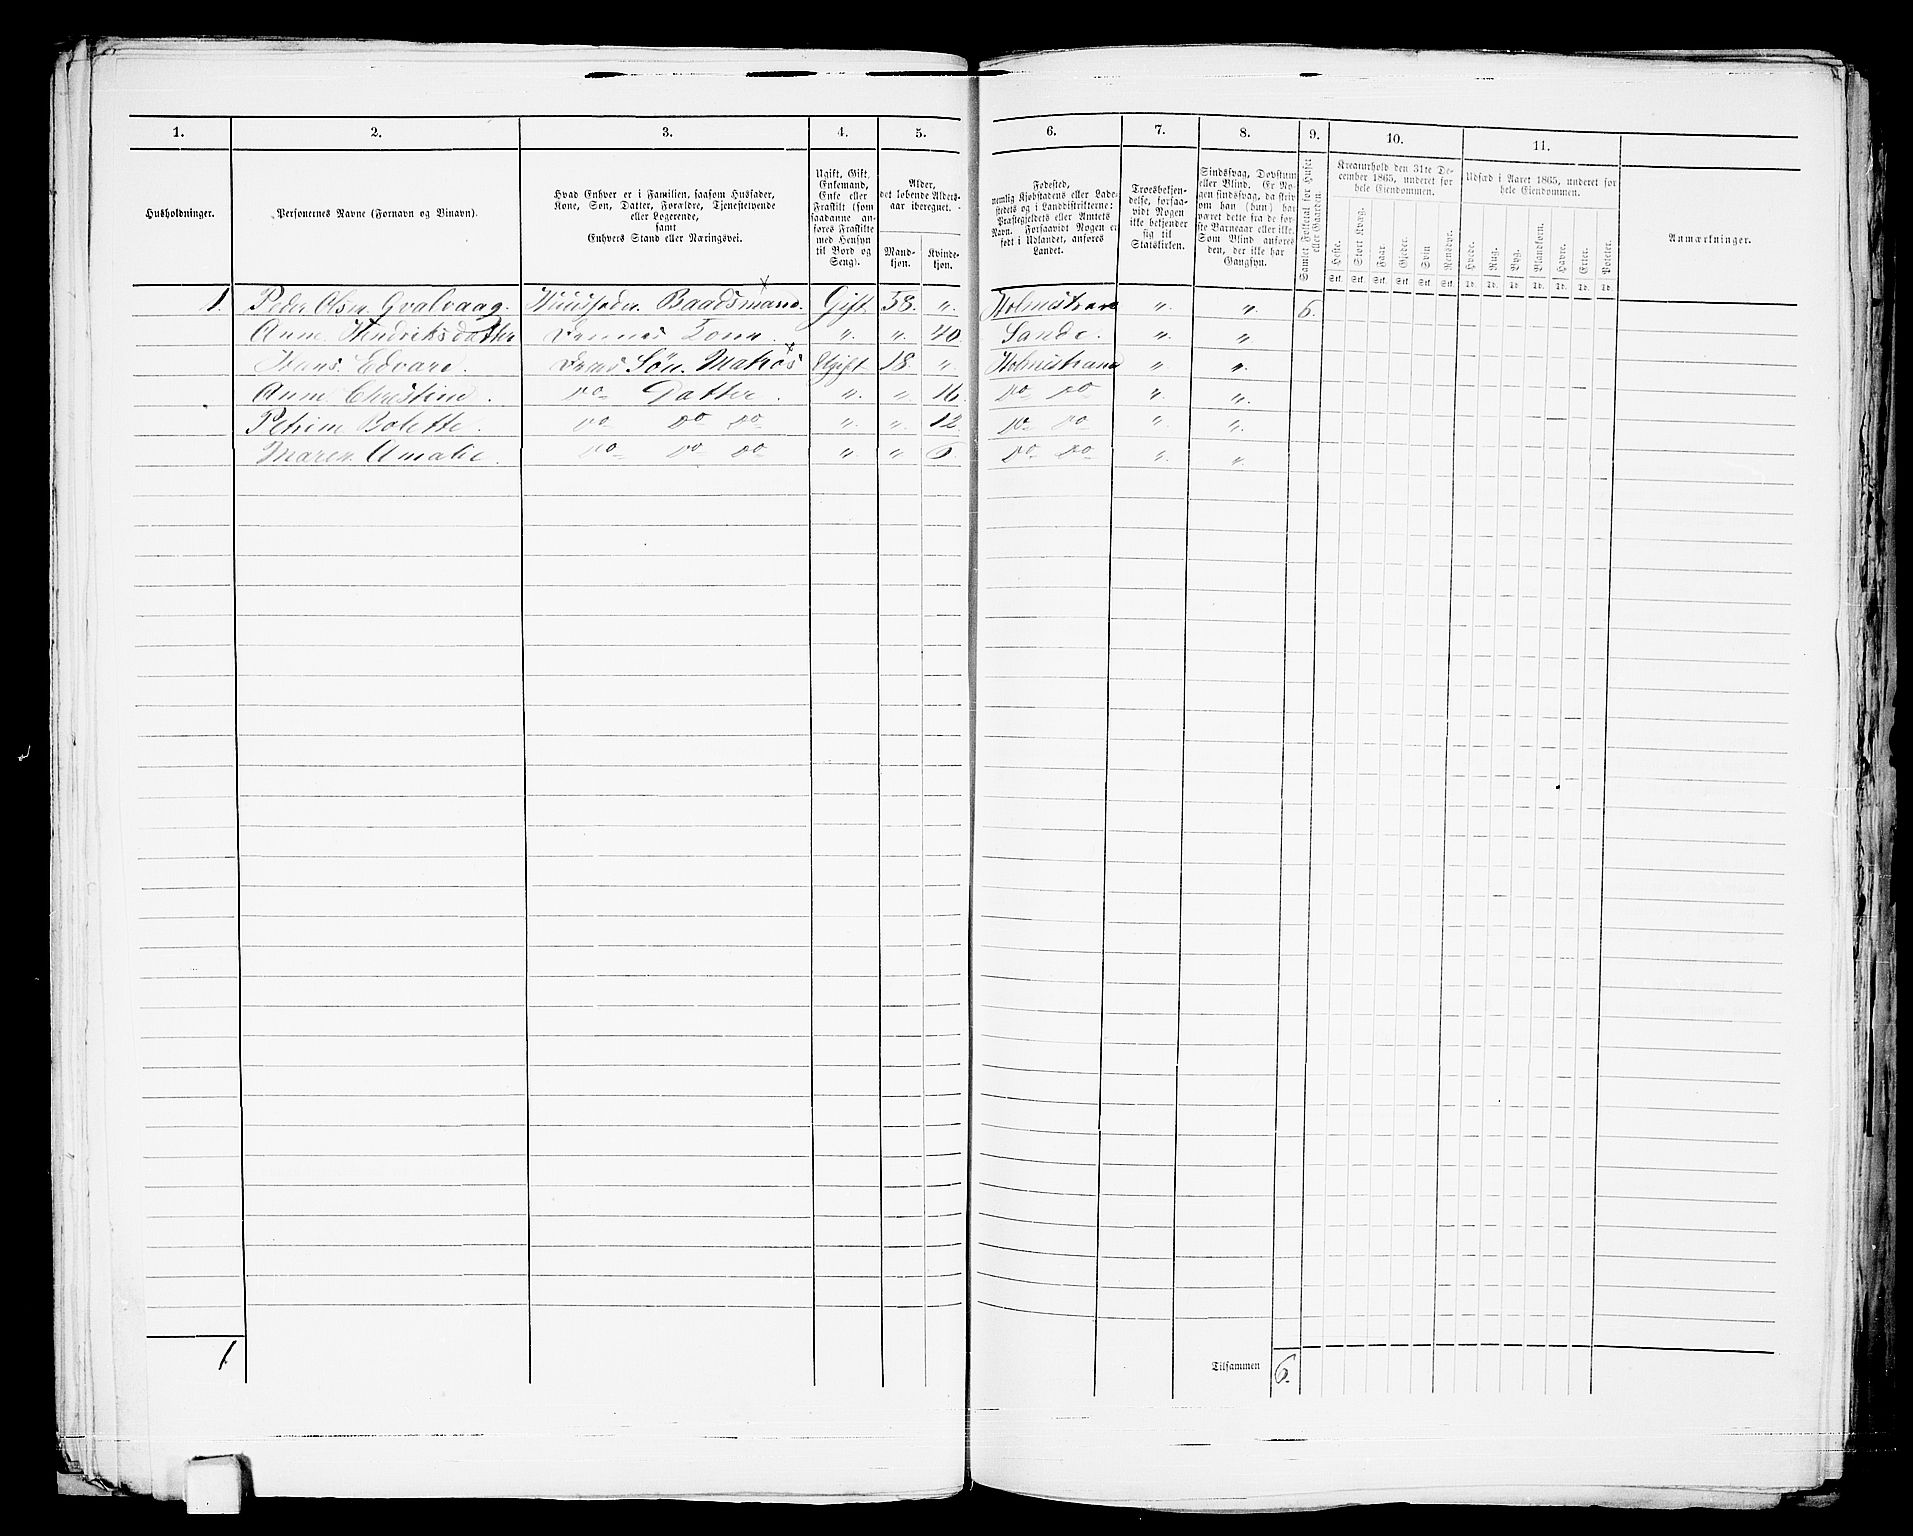 1. 2. 3. 4. 5. 6. 7. 8. 9. 10. 11.
Husholdninger.
Personernes Navne (Fornavn og Tilnavn).
Hvad Enhver er i Familien, saasom Husfader,
Kone, Søn, Datter, Forældre, Tjenestetyende
eller Logerende,
samt
Enhvers Stand eller Næringsvei.
Ugift, Gift,
Enkemand,
Enke eller
Fraskilt (som
saadanne an-
føres Fraskilte
med Hensyn
til Bord og
Seng).
Alder,
det løbende Alders-
aar iberegnet.
Mand-
kjøn.
Kvinde-
kjøn.
Fødested,
nemlig Kjøbstadens eller Lade-
stedets og i Landdistrikterne:
Præstegjeldets eller Amtets
Navn. Forsaavidt Nogen er
født i Udlandet, anføres
Landet.
Troesbekjen-
delse, forsaa-
vidt Nogen
ikke bekjender
sig til
Statskirken.
Sindssvag, Døvstum
eller Blind. Er No-
gen sindssvag, da skriv
om han (hun) har
været dette fra de før-
ste Barneaar eller ikke.
Som Blind anføres
den, der ikke har
Gangsyn.
Samlet Folketal for Huset
eller Gaarden.
Kreaturhold den 31te De-
cember 1865, underet for
hele Eiendommen.
Heste. Stort Kvæg. Faar. Gjeder. Svin Rensdyr.
Stk. Stk. Stk. Stk. Stk. Stk.
Udsæd i Aaret 1865, underet for
hele Eiendommen.
Hvede. Rug. Byg. Blandkorn. Havre. Erter. Poteter.
Td. Td. Td. Td. Td. Td. Td.
Anmærkninger.
1. Peder Olsen Gvalvaag. Huusfader. Baadsmand. Gift 58. „ Holmestrand „ „ 6.
Anne Hendriksdatter Dennes Kone. „ „ 40. Sande. „ „
Hans Edvard. Deres Søn. Matros Ugift 18. „ Holmestrand „ „
Anne Christine. Do Datter. „ „ 16. Do Do „ „
Petrine Bolette. Do Do Do „ „ 12. Do Do „ „
Maren Amalie. Do Do Do „ „ 6. Do Do „ „
1 Tilsammen 6.